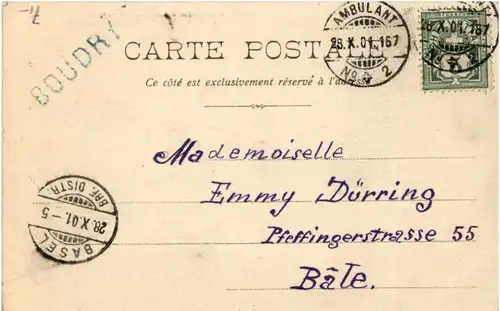 71.
BOUDRY
AMBULANT
28.X.01.167
No. 2
28.X.01.167
No. 2
CARTE POSTALE
Ce côté est exclusivement réservé à l'adresse
Mademoiselle
Emmy Dürring
Pfeffingerstrasse 55
Bâle.
BRF. DISTR.
28.X.01.-5
BASEL